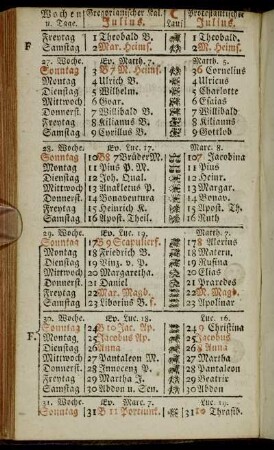 Wochen Gregorianischer Kal. ☾ Protestantischer
u. Tage. Julius. Lauf Julius.
Freytag 1 Theobald B. 1 Theobald.
F
Samstag 2 Mar. Heims. 2 M. Heims.
27. Woche. Ev. Matth. 7. Matth. 5.
Sonntag 3 B 7 M. Heims. 3 6 Cornelius
Montag 4 Ulrich B. 4 Ulricus
Dienstag 5 Wilhelm. 5 Charlotte
Mittwoch 6 Goar. 6 Esaias
Donnerst. 7 Willibald B. 7 Willibald
Freytag 8 Kilianus B. 8 Kilianus
Samstag 9 Cyrillus B. 9 Gottlob
28. Woche. Ev. Luc. 17. Marc. 8.
Sonntag 10 B 8 7 Brüder M. 10 7 Jacobina
Montag 11 Pius P. M. 11 Pius
Dienstag 12 Joh. Qual. 12 Heinr.
Mittwoch 13 Anakletus P. 13 Margar.
Donnerst. 14 Bonaventura 14 Bonav.
Freytag 15 Heinrich K. 15 Apost. Th.
Samstag 16 Apost. Theil. 16 Ruth
29. Woche. Ev. Luc. 19. Matth. 7.
Sonntag 17 B 9 Scapulierf. 17 8 Alexius
Montag 18 Friedrich B. 18 Matern.
Dienstag 19 Vinz. v. P. 19 Rufina
Mittwoch 20 Margaretha. 20 Elias
Donnerst. 21 Daniel 21 Praxedes
Freytag 22 Mar. Magd. 22 M. Magd.
Samstag 23 Liborius B. 23 Apolinar
30. Woche. Ev. Luc. 18. Luc. 16.
Sonntag 24 B 10 Jac. Ap. 24 9 Christina
F.
Montag 25 Jacobus Ap. 25 Jacobus
Dienstag 26 Anna 26 Anna
Mittwoch 27 Pantaleon M. 27 Martha
Donnerst. 28 Innocenz P. 28 Pantaleon
Freytag 29 Martha J. 29 Beatrix
Samstag 30 Abdon u. Sen. 30 Abdon
31. Woche. Ev. Marc. 7. Luc. 19.
Sonntag 31 B 11 Portiunk. 31 10 Thrasib.